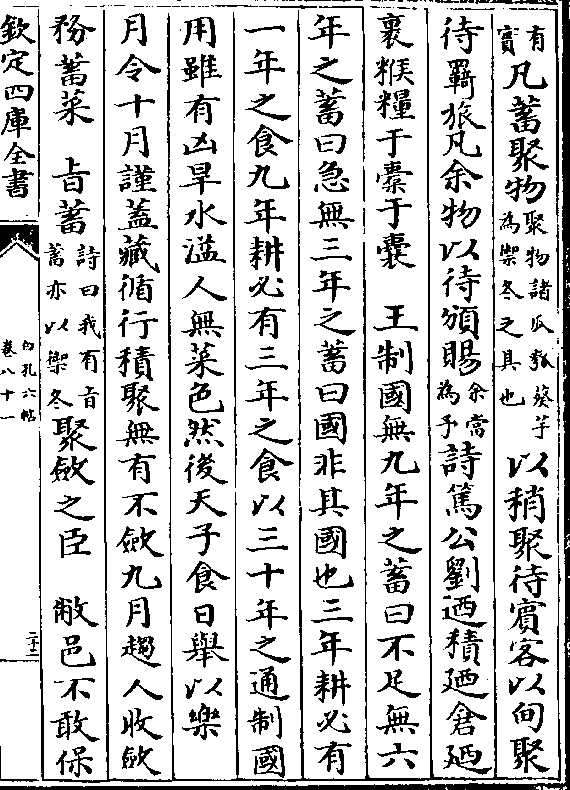 有實凡蓄聚物聚物諸瓜瓠葵芋為禦冬之具也以稍聚待賓客以甸聚
待羇旅凡余物以待頒賜余當為予詩篤公劉迺積廼倉廼
裹糇糧于橐于囊　王制國無九年之蓄曰不足無六
年之蓄曰急無三年之蓄曰國非其國也三年耕必有
一年之食九年耕必有三年之食以三十年之通制國
用雖有凶旱水溢人無菜色然後天子食日舉以樂
月令十月謹蓋藏循行積聚無有不斂九月趨人收斂
務蓄菜　旨蓄詩曰我有旨蓄亦以禦冬聚斂之臣　敝邑不敢保
欽定四庫全書
白孔六帖
卷八十一